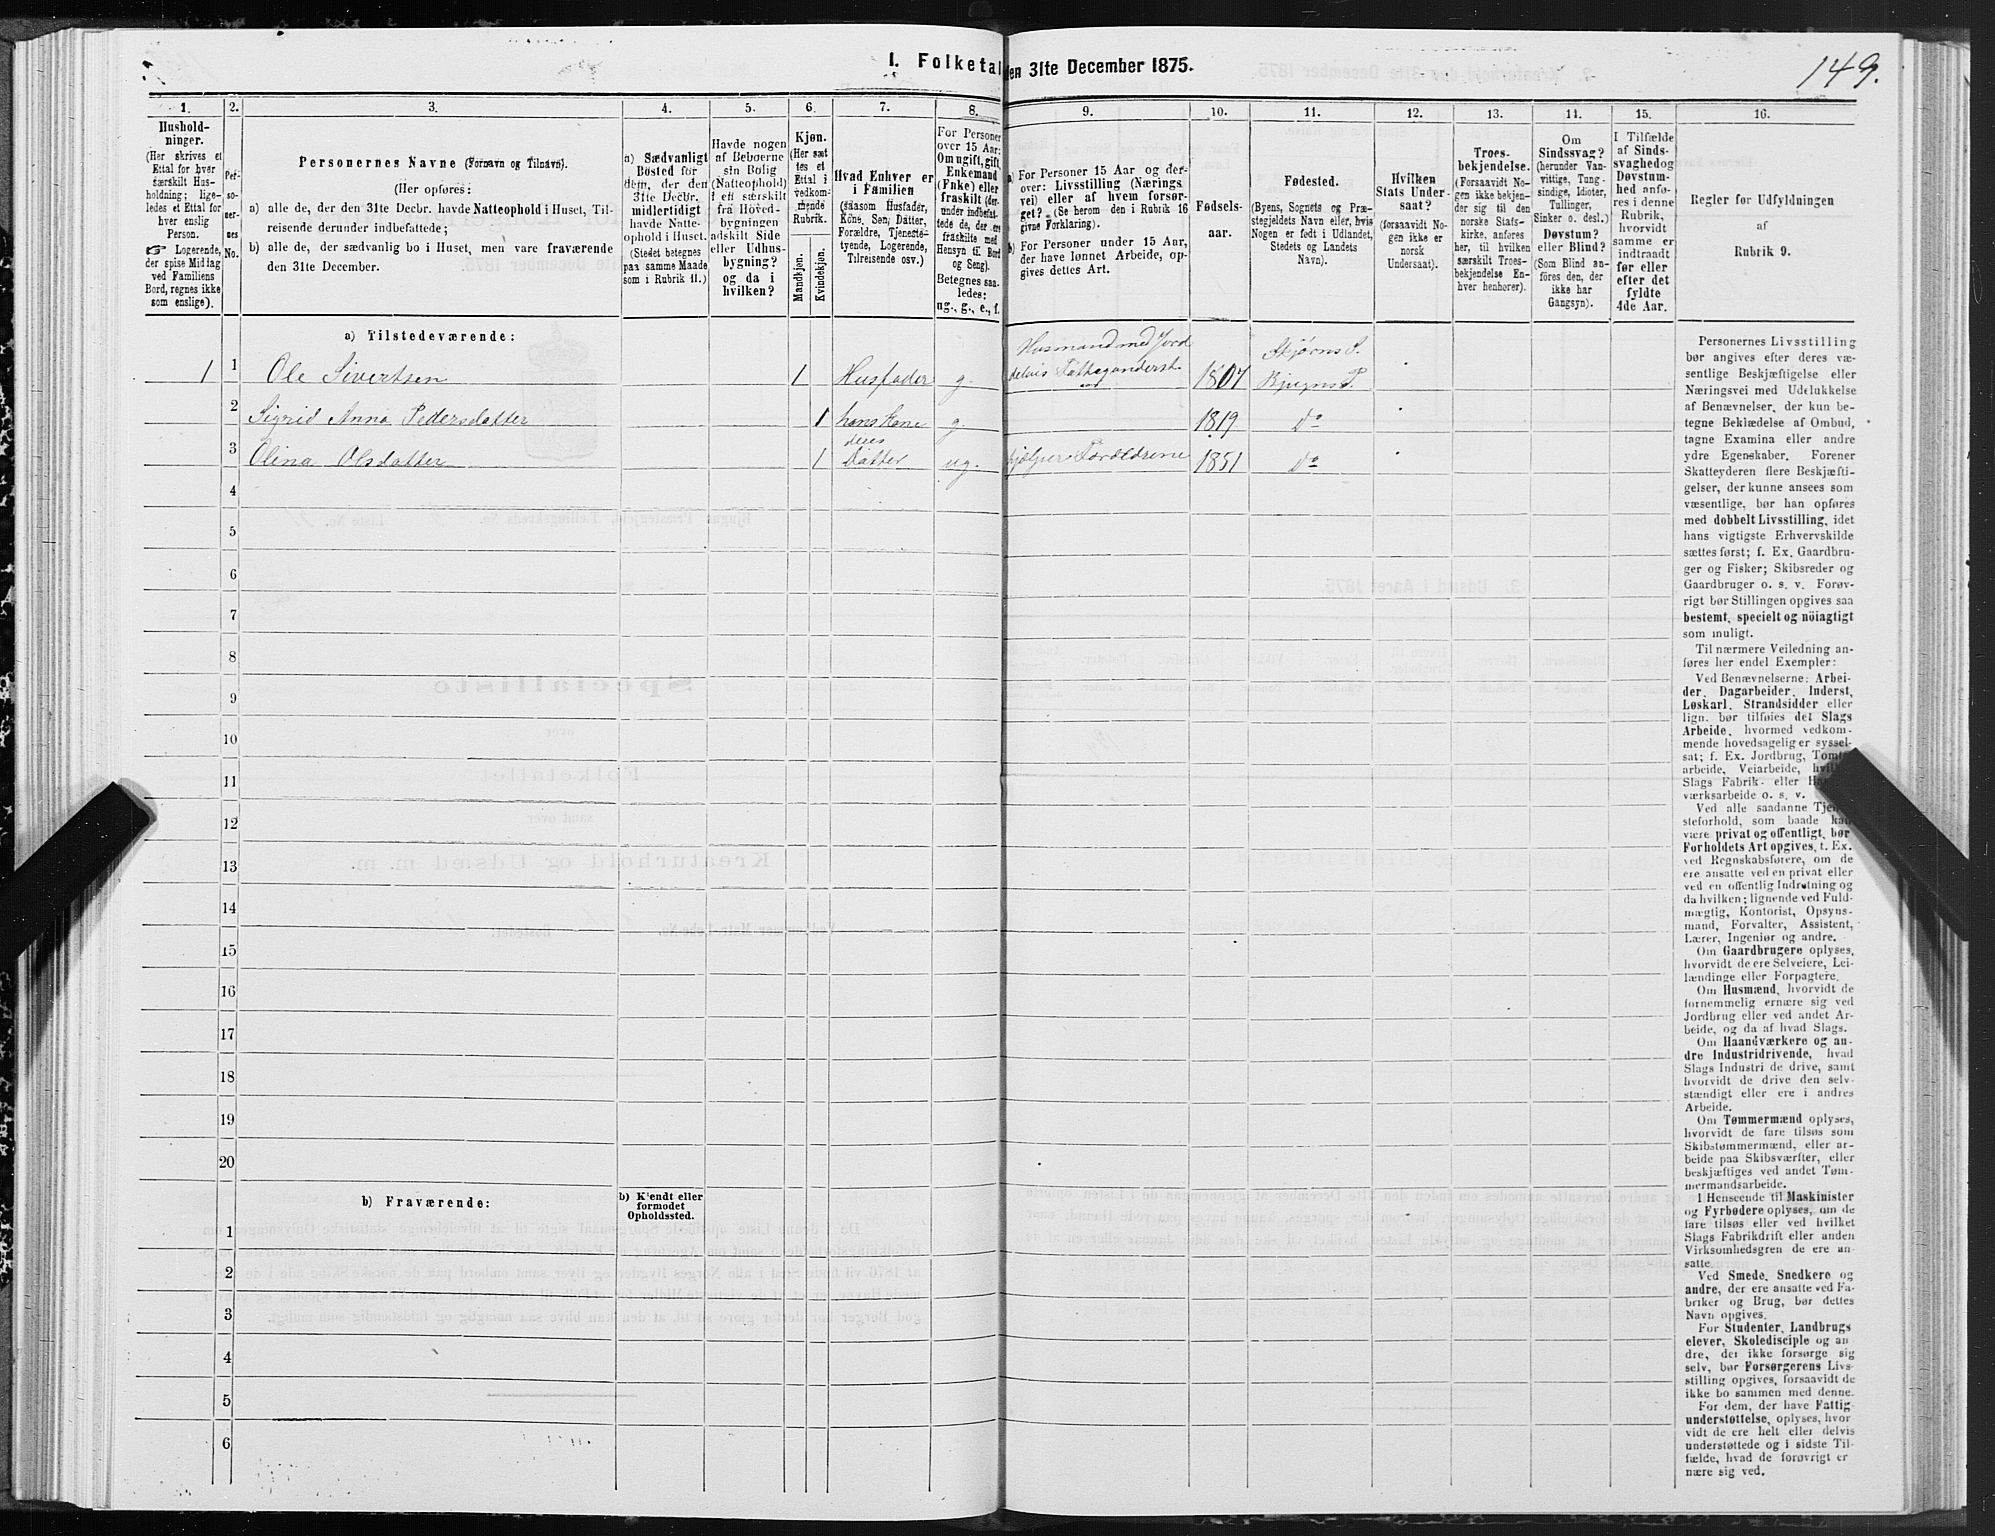 I. Folketal
den 31te December 1875.
149.
1.
2.
3.
4.
5.
6.
7.
8.
9.
10.
11.
12.
13.
14.
15.
16.
Hushold-
ninger.
(Her skrives et
Ettal for hver
særskilt Hus-
holdning; lige-
ledes et Ettal for
hver enslig
Person.
☞ Logerende,
der spise Middag
ved Familiens
Bord, regnes ikke
som enslige).
Per-
so-
ner-
nes
No.
Personernes Navne (Fornavn og Tilnavn).
(Her opføres:
a) alle de, der den 31te Decbr. havde Natteophold i Huset, Til-
reisende derunder indbefattede;
b) alle de, der sædvanlig bo i Huset, men vare fraværende
den 31te December.
a) Sædvanligt
Bosted for
dem, der den
31te Decbr.
midlertidigt
havde Natte-
ophold i Huset.
(Stedet betegnes
paa samme Maade
som i Rubrik 11.)
Havde nogen
af Beboerne
sin Bolig
(Natteophold)
i en særskilt
fra Hoved-
bygningen
adskilt Side
eller Udhus-
bygning?
og da i
hvilken?
Kjøn.
(Her sæt-
tes et
Ettal i
vedkom-
mende
Rubrik.
Mandkjøn.
Kvindekjøn.
Hvad Enhver er
i Familien
(saasom Husfader,
Kone, Søn, Datter,
Forældre, Tjeneste-
tyende, Logerende,
Tilreisende osv.)
For Personer
over 15 Aar:
Om ugift, gift,
Enkemand
(Enke) eller
fraskilt (der-
under indbefat-
tede de, der ere
fraskilte med
Hensyn til Bord
og Seng).
Betegnes saa-
ledes:
ug., g., e., f.
a) For Personer 15 Aar og der-
over: Livsstilling (Nærings-
vei) eller af hvem forsør-
get? (Se herom den i Rubrik 16
givne Forklaring).
b) For Personer under 15 Aar,
der have lønnet Arbeide, op-
gives dettes Art.
Fødsels-
aar.
Fødested.
(Byens, Sognets og Præ-
stegjeldets Navn eller, hvis
Nogen er født i Udlandet,
Stedets og Landets
Navn).
Hvilken
Stats Under-
saat?
(forsaavidt No-
gen ikke er
norsk
Undersaat).
Troes-
bekjendelse.
(Forsaavidt No-
gen ikke bekjen-
der sig til den
norske Stats-
kirke, anføres
her, til hvilken
særskilt Troes-
bekjendelse En-
hver henhører).
Om
Sindssvag?
(herunder Van-
vittige, Tung-
sindige, Idioter,
Tullinger,
Sinker o. desl.)
Døvstum?
eller Blind?
(Som Blind an-
føres den, der
ikke har
Gangsyn).
I Tilfælde
af Sinds-
svaghed og
Døvstum-
hed anfø-
res i denne
Rubrik,
hvorvidt
samme er
indtraadt
før eller
efter det
fyldte
4de Aar.
Regler for Udfyldningen
af
Rubrik 9.
a) Tilstedeværende:
Husmand med Jord
Skjørns S.
1 1 Ole Sivertsen 1 Husfader g. delvis Fattigunderst. 1807 Bjugns P.
2 Sigrid Anna Pedersdatter 1 hans kone g. 1819 Do
deres
3 Olina Olsdatter 1 Datter ug. hjælper Forældrene 1851 Do
4
5
6
7
8
9
10
11
12
13
14
15
16
17
18
19
20
b) Fraværende:
b) Kjendt eller
formodet
Opholdssted.
1
2
3
4
5
6
Personernes Livsstilling
bør angives efter deres væ-
sentlige Beskjæftigelse eller
Næringsvei med Udelukkelse
af Benævnelser, der kun be-
tegne Beklædelse af Ombud,
tagne Examina eller andre
ydre Egenskaber. Forener
Skatteyderen flere Beskjæfti-
gelser, der kunne ansees som
væsentlige, bør han opføres
med dobbelt Livsstilling, idet
hans vigtigste Erhvervskilde
sættes først; f. Ex. Gaardbru-
ger og Fisker; Skibsreder og
Gaardbruger o. s. v. Forøv-
rigt bør Stillingen opgives saa
bestemt, specielt og nöiagtigt
som muligt.
Til nærmere Veiledning an-
føres her endel Exempler:
Ved Benævnelserne: Arbei-
der, Dagarbeider, Inderst,
Løskarl, Strandsidder eller
lign. bør tilføies det Slags
Arbeide, hvormed vedkom-
mende hovedsagelig er syssel-
sat; f. Ex. Jordbrug, Tomte-
arbeide, Veiarbeide, hvil
Slags Fabrik- eller Ha
værksarbeide o. s. v.
Ved alle saadanne Tje
steforhold, som baade kan
være privat og offentligt, bør
Forholdets Art opgives, t. Ex.
ved Regnskabsførere, om de
ere ansatte ved en privat eller
ved en offentlig Indretning og
da hvilken; lignende ved Fuld-
mægtig, Kontorist, Opsyns-
mand, Forvalter, Assistent,
Lærer, Ingeniør og andre.
Om Gaardbrugere oplyses,
hvorvidt de ere Selveiere, Lei-
lændinge eller Forpagtere.
Om Husmænd, hvorvidt de
fornemmelig ernære sig ved
Jordbrug eller ved andet Ar-
beide, og da af hvad Slags.
Om Haandværkere og an-
dre Industridrivende, hvad
Slags Industri de drive, samt
hvorvidt de drive den selv-
stændigt eller ere i andres
Arbeide.
Om Tømmermænd oplyses,
hvorvidt de fare tilsøs som
Skibstømmermænd, eller ar-
beide paa Skibsværfter, eller
beskjæftiges ved andet Tøm-
mermandsarbeide.
I Henseende til Maskinister
og Fyrbødere oplyses, om de
fare tilsøs eller ved hvilket
Slags Fabrikdrift eller anden
Virksomhedsgren de ere an-
satte.
Ved Smede, Snedkere og
andre, der ere ansatte ved Fa-
briker og Brug, bør dettes
Navn opgives.
For Studenter, Landbrugs
elever, Skoledisciple og an-
dre, der ikke forsørge sig
selv, bør Forsørgerens Livs-
stilling opgives, forsaavidt de
ikke bo sammen med denne.
For dem, der have Fattig
understøttelse, oplyses, hvor
vidt de ere helt eller delvis
understøttede og i sidste Til-
fælde, hvad de forøvrigt er
nære sig ved.